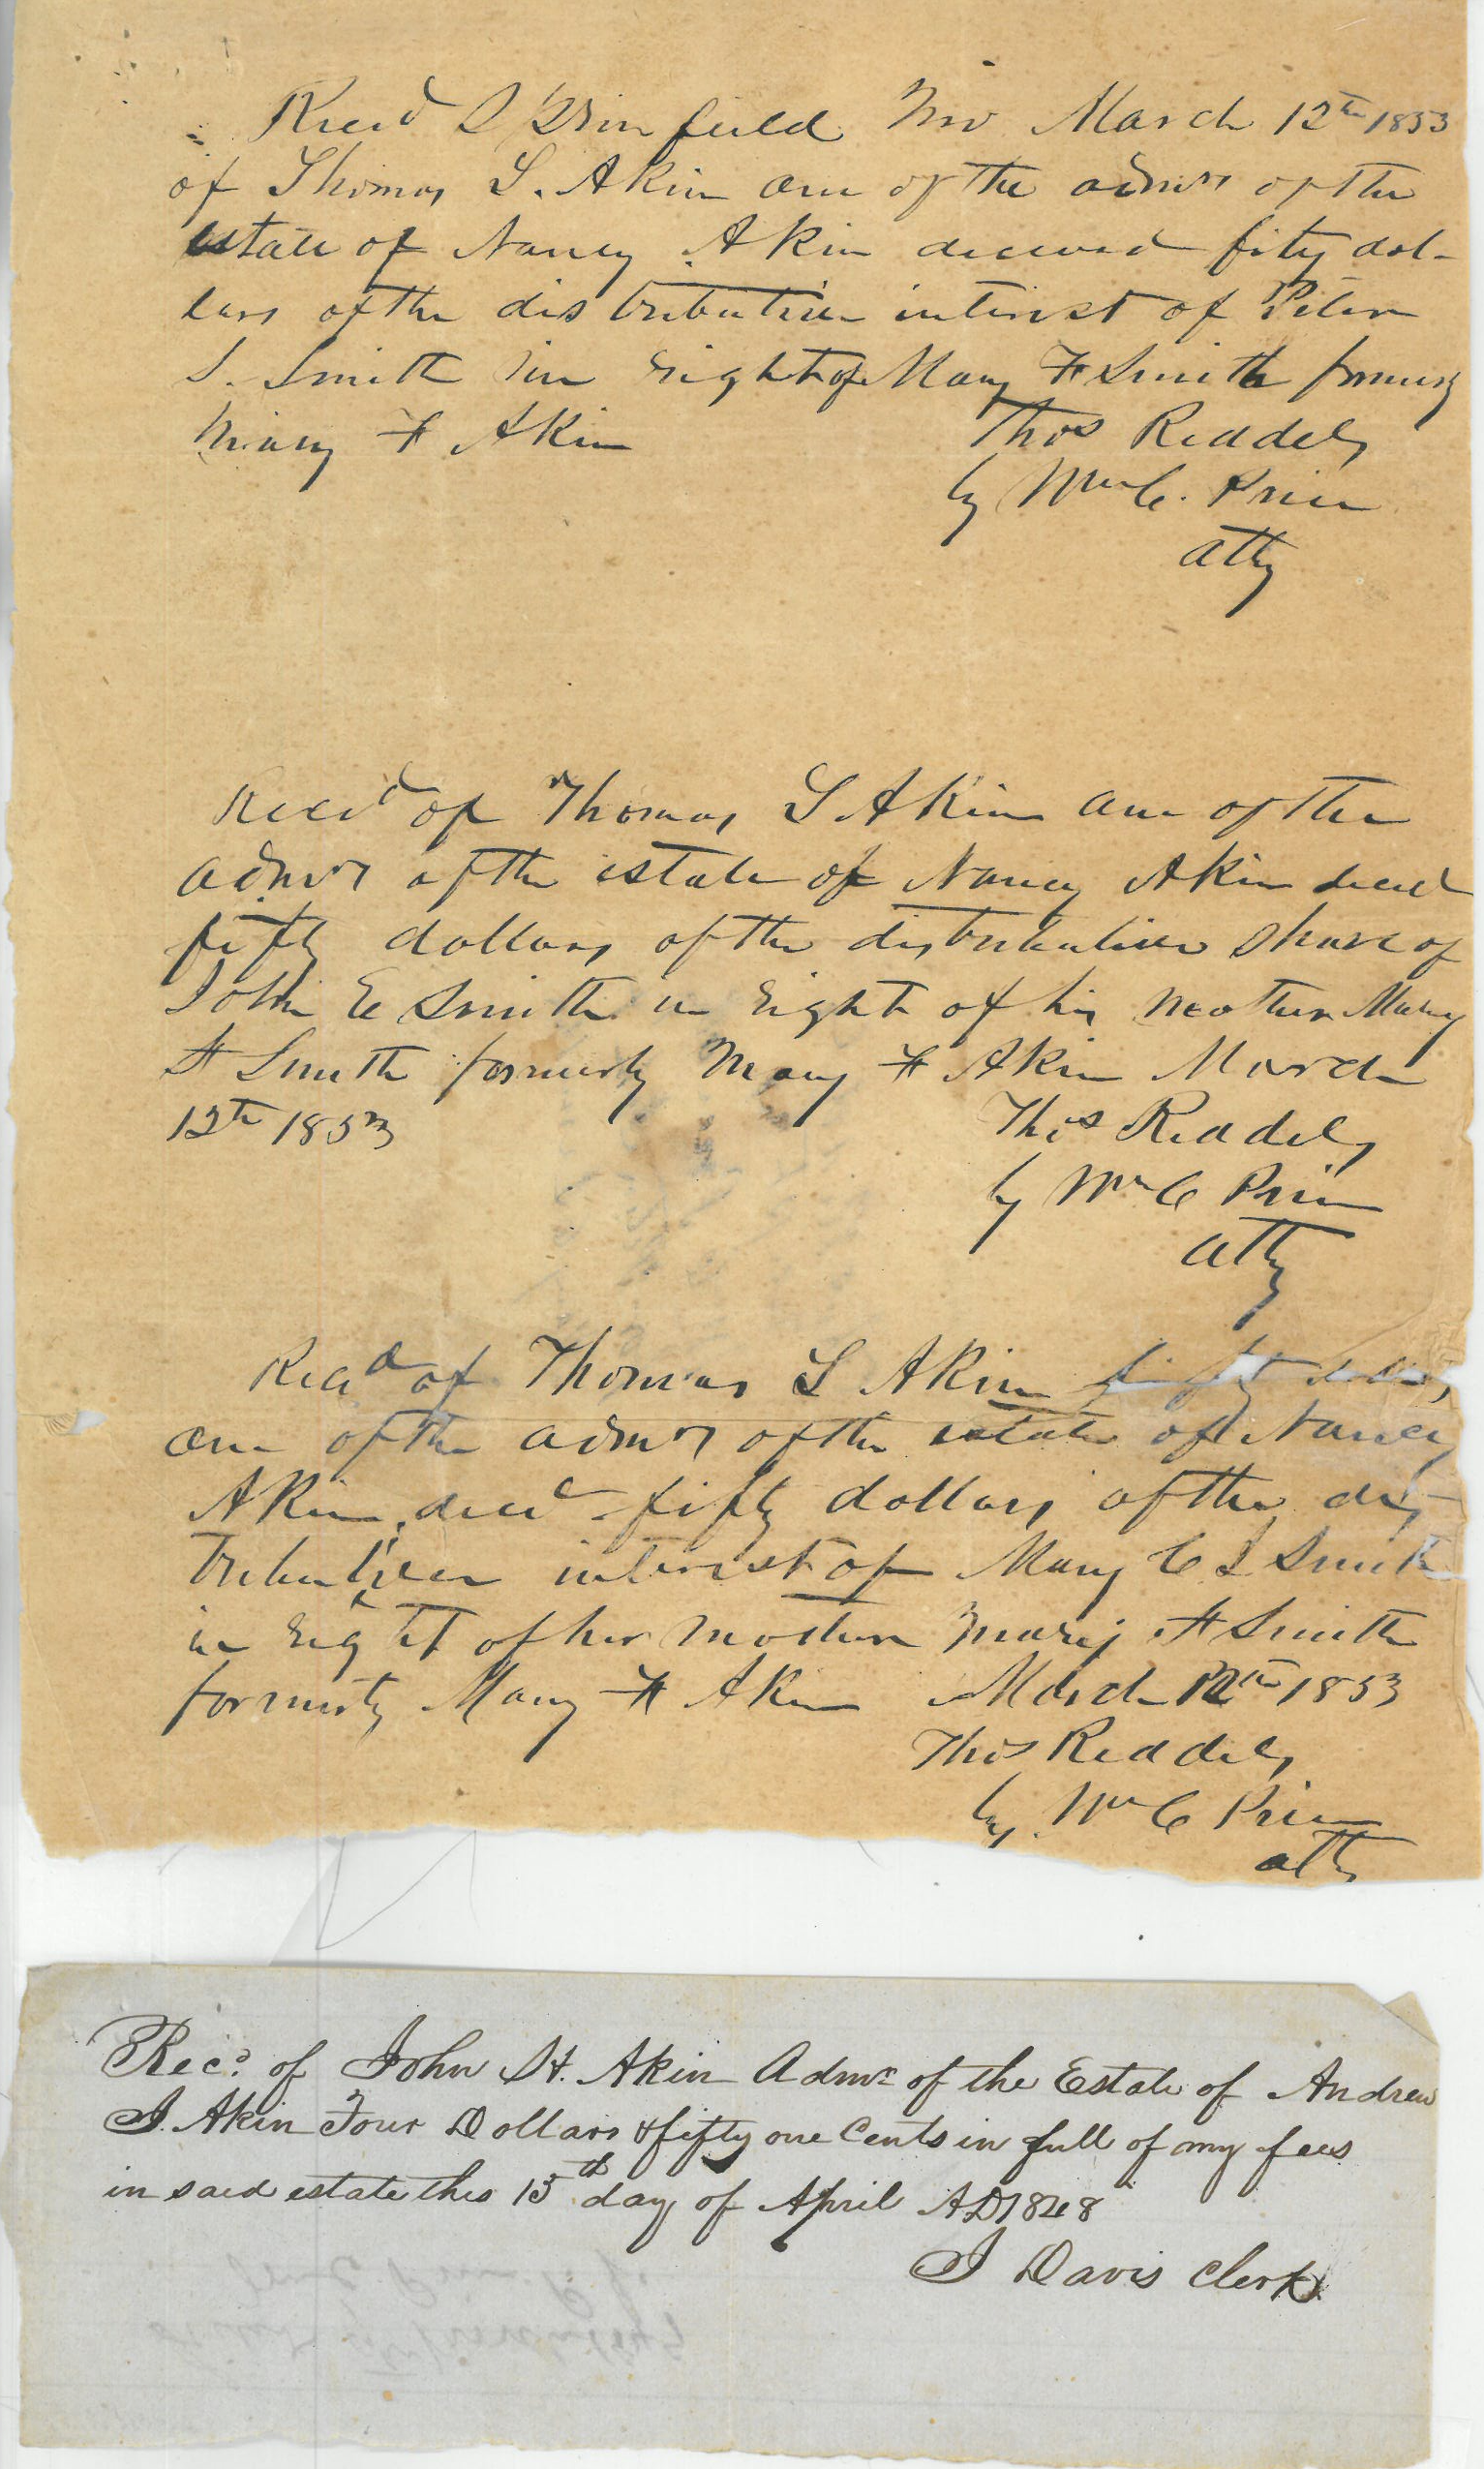 Recd Springfield Mo March 12th 1853
of Thomas S. Akin one of the admrs of the
estate of Nancy Akin deceasd fifty dol-
lars of the distributive interest of Peter
S. Smith in right of Mary F Smith formerly
Mary F Akin
Thos Reddely
by Wm C. Price
atty
Recd of Thomas S Akin one of the
admrs of the estate of Nancy Akin decd
fifty dollars of the distributive share of
John E Smith in right of his mother Mary
F Smith formerly Mary F Akin March
12th 1853
Thos Reddely
by Wm C Price
atty
Recd of Thomas S Akin fifty dollars
one of the admrs of the estate of Nancy
Akin, decd fifty dollars of the dis-
tributive interest of Mary C S Smith
in right of her mother Mary F Smith
formerly Mary F Akin March 12th 1853
Thos Reddely
by Wm C Price
atty
Recd. of John H. Akin Admr of the Estate of Andrew
J. Akin Four Dollars & fifty one Cents in full of my fees
in said estate this 15th day of April AD 1848
J Davis Clerk